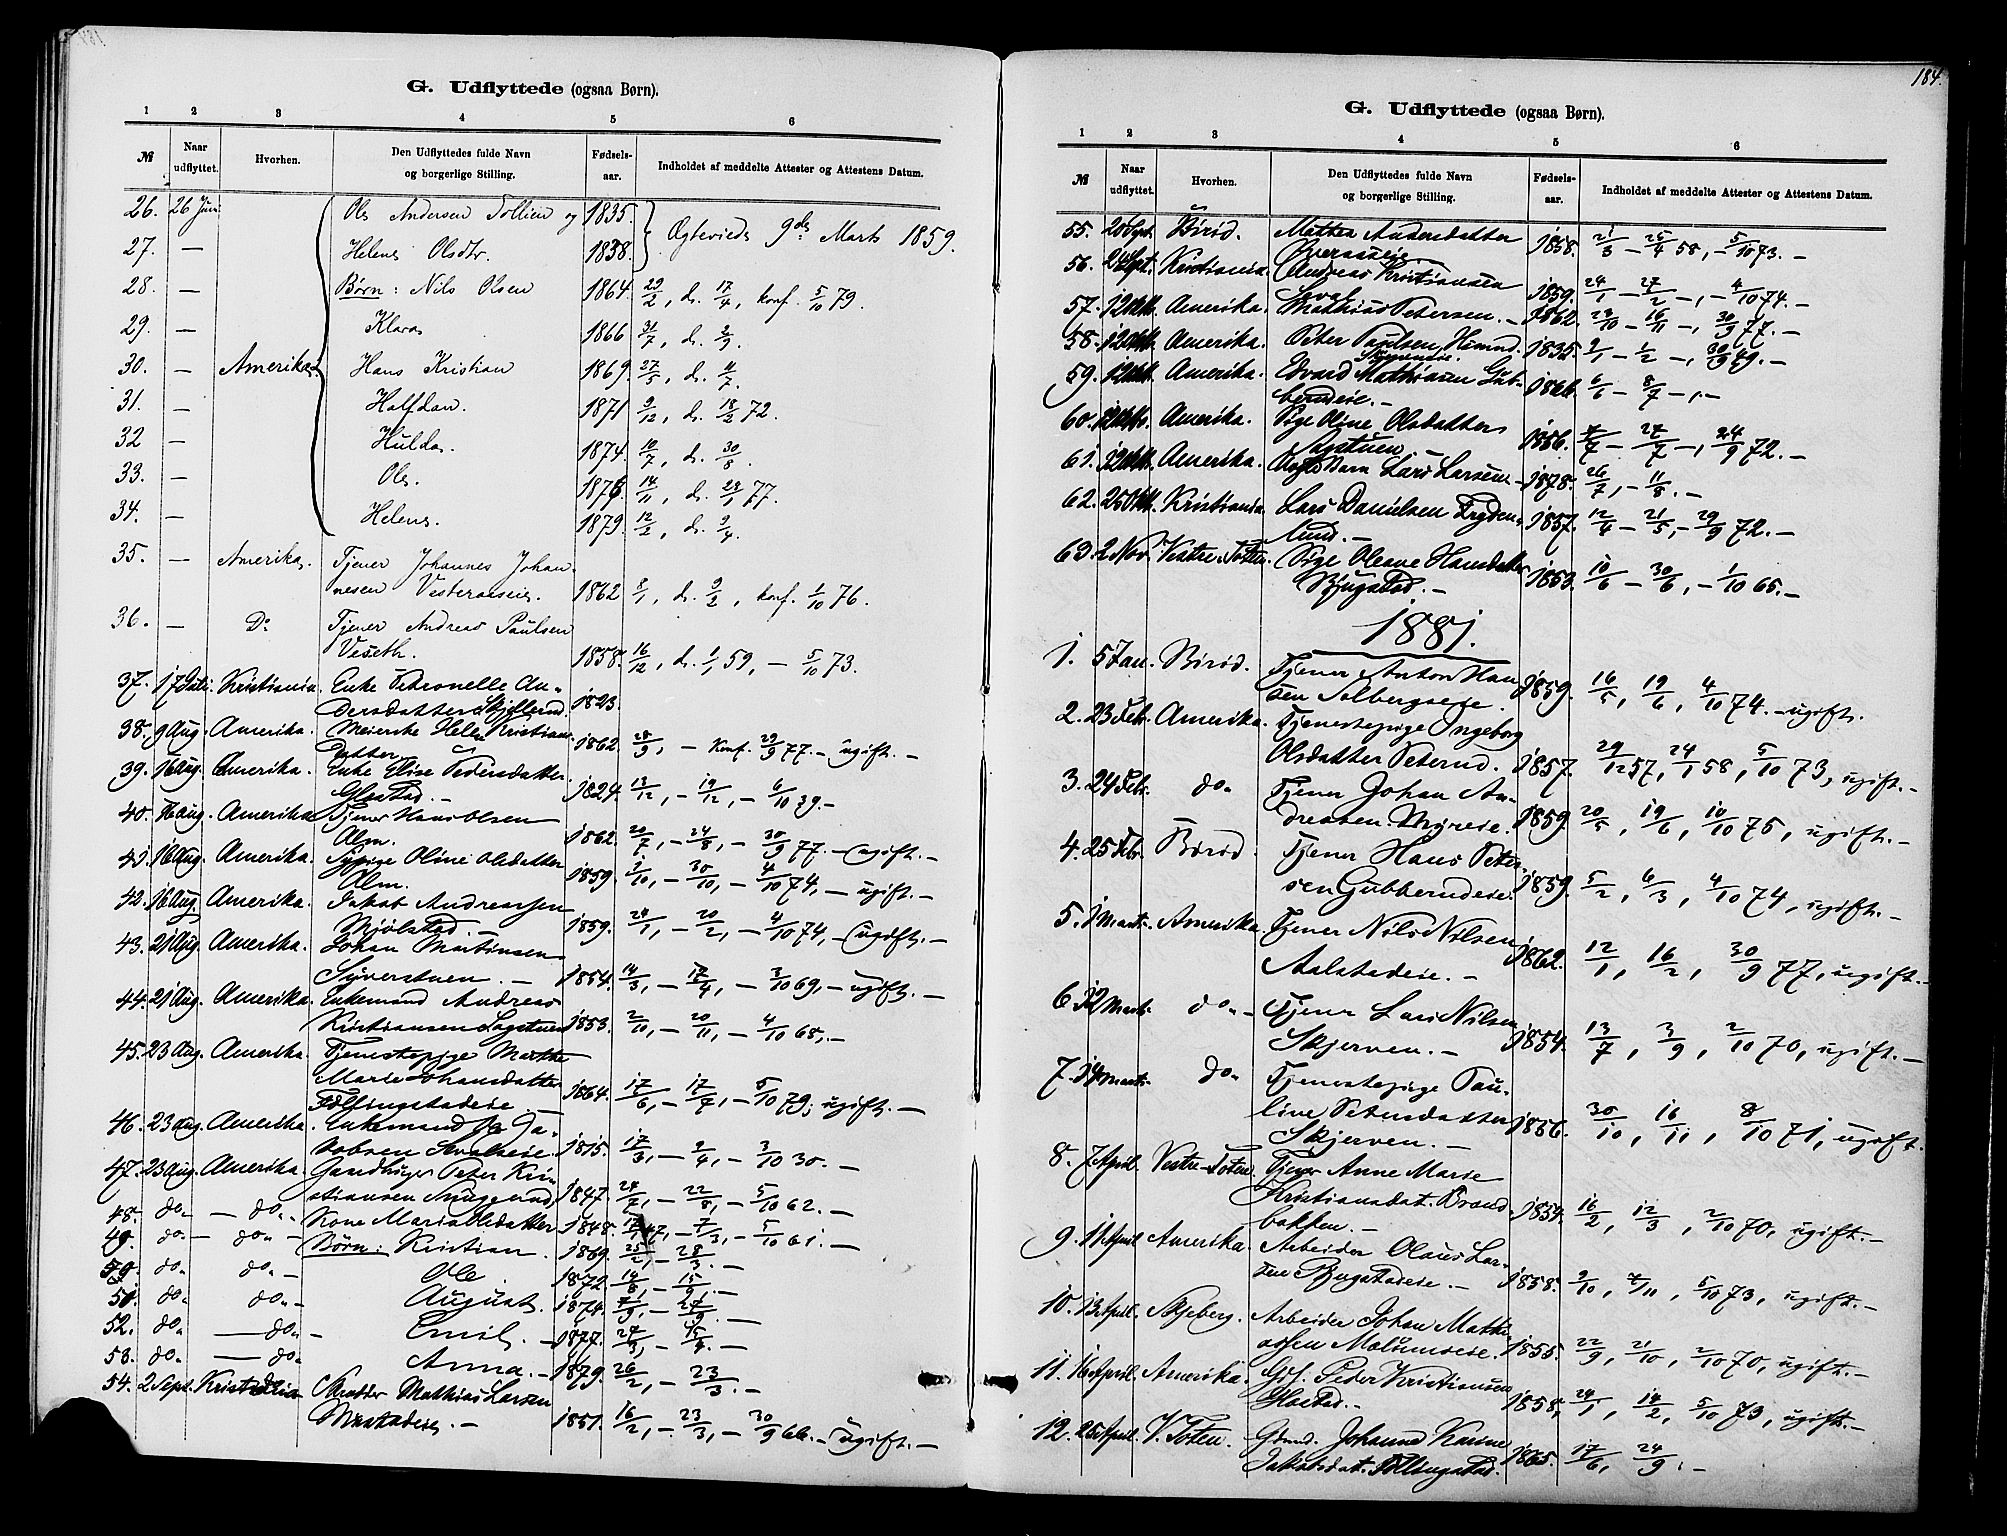 G. Udflyttede (ogsaa Børn).
1 2 3 4 5 6
№ Naar udflyttet. Hvorhen. Den Udflyttedes fulde Navn og borgerlige Stilling. Fødsels-aar. Indholdet af meddelte Attester og Attestens Datum.
26. 26 Juni Ole Andersen Tollien og 1835. Ægteviede 9de Marts 1859.
27. — Helene Olsdtr. 1838.
28. — Børn: Nils Olsen 1864. 29/2, d. 17/4, konf. 5/10 79.
29. — Klara 1866 31/7, d. 2/9.
30. — Amerika. Hans Kristian 1869. 27/5, d. 11/7.
31. — Halfdan. 1871 9/12, d. 18/2 72.
32 — Hulda. 1874. 10/7, d. 30/8.
33. — Ole. 1876. 14/11, d. 28/1 77.
34. — Helene. 1879. 12/2, d. 9/4.
35. — Amerika. Tjener Johannes Johan-
nesen 1862 8/1, d. 9/2, konf. 1/10 76.
36. — Do Tjener Andreas Paulsen
Veseth. 1858. 16/12, d. 1/1 59, — 5/10 73.
37. 17 Kristiania. Enke Petronelle An-
dersdatter Skjellerud. 1823.
38. 9 Aug. Amerika. Meierske Helene Kristians-
datter 1862. 28/9, — konf. 29/9 77. — ugift. —
39. 16 Aug. Amerika. Enke Elise Pedersdatter
Glæstad. — 1824. 13/12, — 19/12, — 6/10 39. —
40. 16 Aug. Amerika Tjener Hans Olsen
Alm. 1862. 20/7, — 24/8, — 30/9 77. — ugift. —
41. 16 Aug. Amerika. Sypige Oline Olsdatter
Alm. 1859. 2/10, — 30/10, — 4/10 74, — ugift. —
42. 16 Aug. Amerika. Jakob Andreassen
Mjølstad. — 1859. 24/1, — 20/2, — 4/10 74, — ugift. —
43. 21 Aug. Amerika. Johan Martinsen
Syverstuen. — 1854. 14/3, — 17/4, — 3/10 69, — ugift. —
44. 21 Aug. Amerika. Enkemand Andreas
Kristiansen Sagstuen 1853. 2/10, — 20/11, — 4/10 68, —
45. 23 Aug. Amerika. Tjenestepige Marthe
Marie Johansdatter
Follingstadeie. — 1864. 17/6, — 17/7, — 5/10 79, ugift. —
46. 23 Aug. Amerika. Enkemand Ja-
kobsen 1815. 17/3, — 2/4, — 3/10 30. —
47. 23 Aug. Amerika. Gaardbruger Peter Kri-
stiansen Snuggerud, 1847. 24/7, — 22/8, — 5/10 62. —
48. do. — do. Kone Maria Olsdatter 1848. — 7/3, — 5/10 61. —
49. do. — do. — Børn: Kristian. 1869. 25/2, — 28/3. —
50. do. do. — Ole 1872. 14/8, — 15/9. —
51. do. do. — August. 1874.
52. do. — do. — Emil. — 1877.
53. do. — do. Anna. — 1879. 26/2, — 23/3. —
54. 2 Sept. Kristiania Skrædder Mathias Larsen
Mustadeie. — 1851. 16/2, — 23/3, — 30/9 66. — ugift. —
184.
G. Udflyttede (ogsaa Børn).
1 2 3 4 5 6
№ Naar udflyttet. Hvorhen. Den Udflyttedes fulde Navn og borgerlige Stilling. Fødsels-aar. Indholdet af meddelte Attester og Attestens Datum.
55. 20 Sept. Birid. Mathea Andersdatter
1858. 21/3 — 25/4 58, — 5/10 73. —
56. 24 Sept. Kristiania. Andreas Kristiansen
1859. 24/1 — 27/2 —, — 4/10 74. —
57. 12 Okt. Amerika. Mathias Petersen. — 1862. 23/10 — 16/11 —, 30/9 77. —
58. 12 Okt. Amerika. Peter Paulsen 1835. 9/1 — 1/2 —, 30/9 49. —
59. 12 Okt. Amerika. Edvard Mathiasen Gub-
berudeie. — 1866. 6/6 — 8/7 —, —
60. 12 Okt. Amerika. Pige Oline Olsdatter
Sagstuen. — 1856. 7/7 — 27/7 —, 24/9 72. —
61. 12 Okt. Amerika. Barn Lars Larsen — 1878. 26/7, — 11/8. —
62. 25 Okt. Kristiania. Lars Danielsen Fryden-
lund. — 1857. 12/4 — 21/5, — 29/9 72. —
63. 2 Nov. Vestre Toten. Pige Oleane Hansdatter
Bjugstad. — 1853. 10/6 — 30/6, — 1/10 65. —
1881.
1. 5 Jan. Birid. Tjener Anton Han-
sen Solbergseie. 1859. 16/5, 19/6, 4/10 74. — ugift.
2. 23 Feb. Amerika. Tjenestepige Ingeborg
Olsdatter Peterud. 1857. 29/12 57, 24/1 58, 5/10 73, ugift. —
3. 24 Feb. do. Tjener Johan An-
dreasen Myreie. 1859. 20/5, 19/6, 10/10 75, ugift. —
4. 25 Feb. Birid. Tjener Hans Peter-
sen Gubberudeie. 1859. 5/2, 6/3, 4/10 74, ugift. —
5. 1 Marts. Amerika. Tjener Nils Nilsen
Aalstadeie. — 1862. 12/1, 16/2, 30/9 77, ugift. —
6. 12 Marts. do. — Tjener Lars Nilsen
Skjerven. — 1854. 13/7, 3/9, 2/10 70, ugift. —
7. 14 Marts. do. Tjenestepige Pau-
line Petersdatter
Skjerven. — 1856. 30/10, 16/11, 8/10 71, ugift.
8. 7 April. Vestre Toten. Tjener Anne Marie
Kristiansdat. Brand-
bakken. — 1854. 16/2, 12/3, 2/10 70, ugift. —
9. 11 April Amerika. Arbeider Olaus Lar-
sen Bjugstadeie. — 1858. 9/10, 7/11, 5/10 73, ugift. —
10. 13 April. Skjeberg. Arbeider Johan Mathi-
assen 1855. 22/9, 21/10, 2/10 70, ugift. —
11. 16 April. Amerika. Peder Kristiansen
Glæstad. — 1858, 24/1, 14/2, 5/10 73, ugift. —
12. 25 April. V. Toten. Johanne Karine
Jakobsdat. Follingstad. 1865. 17/6, 24/9. —